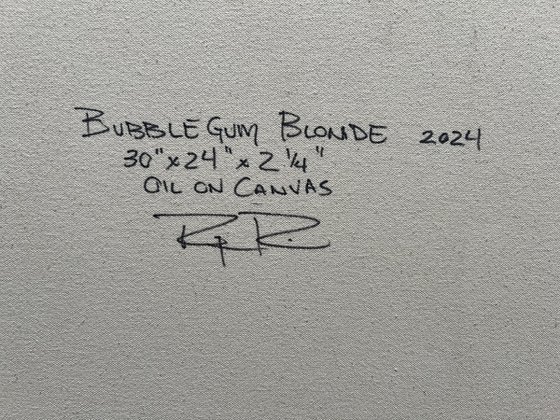 BUBBLEGUM BLONDE 2024
30" x 24" x 2 1/4"
OIL ON CANVAS